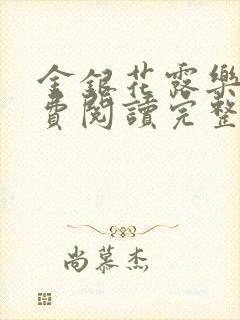 金銀花露樂
費閱讀完整
尚慕杰